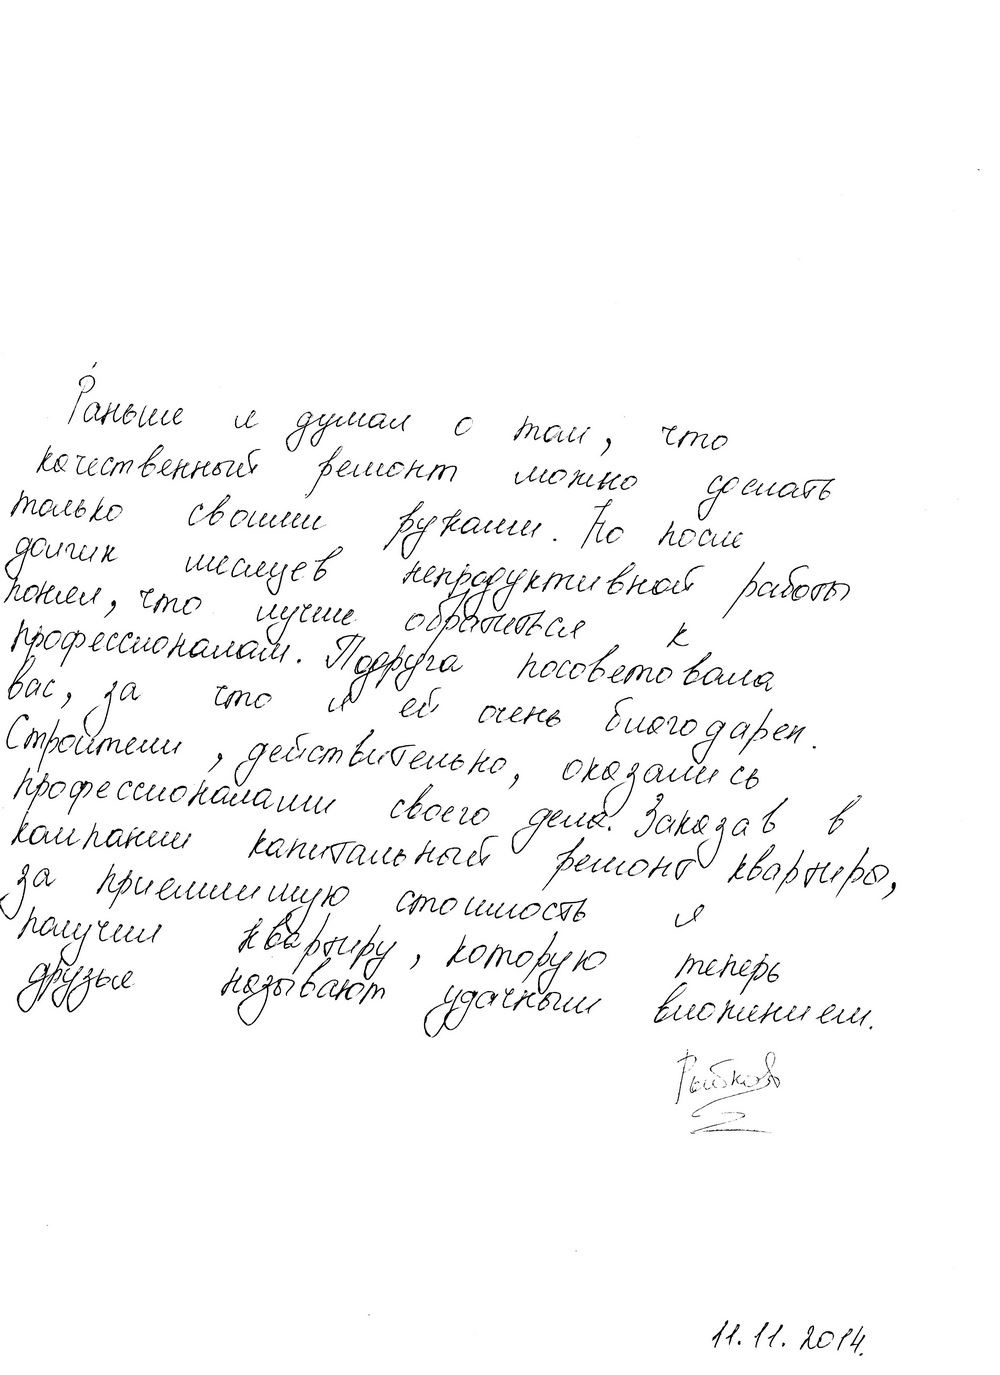 Раньше я думал о том, что
качественный ремонт можно сделать
только своими руками. Но после
долгих месяцев непродуктивной работы
понял, что лучше обратиться к
профессионалам. Подруга посоветовала
вас, за что я ей очень благодарен.
Строители, действительно, оказались
профессионалами своего дела. Заказав в
компании капитальный ремонт квартиры,
за приемлимую стоимость я
получил квартиру, которую теперь
друзья называют удачным вложением.
Рыбков
11.11.2014.